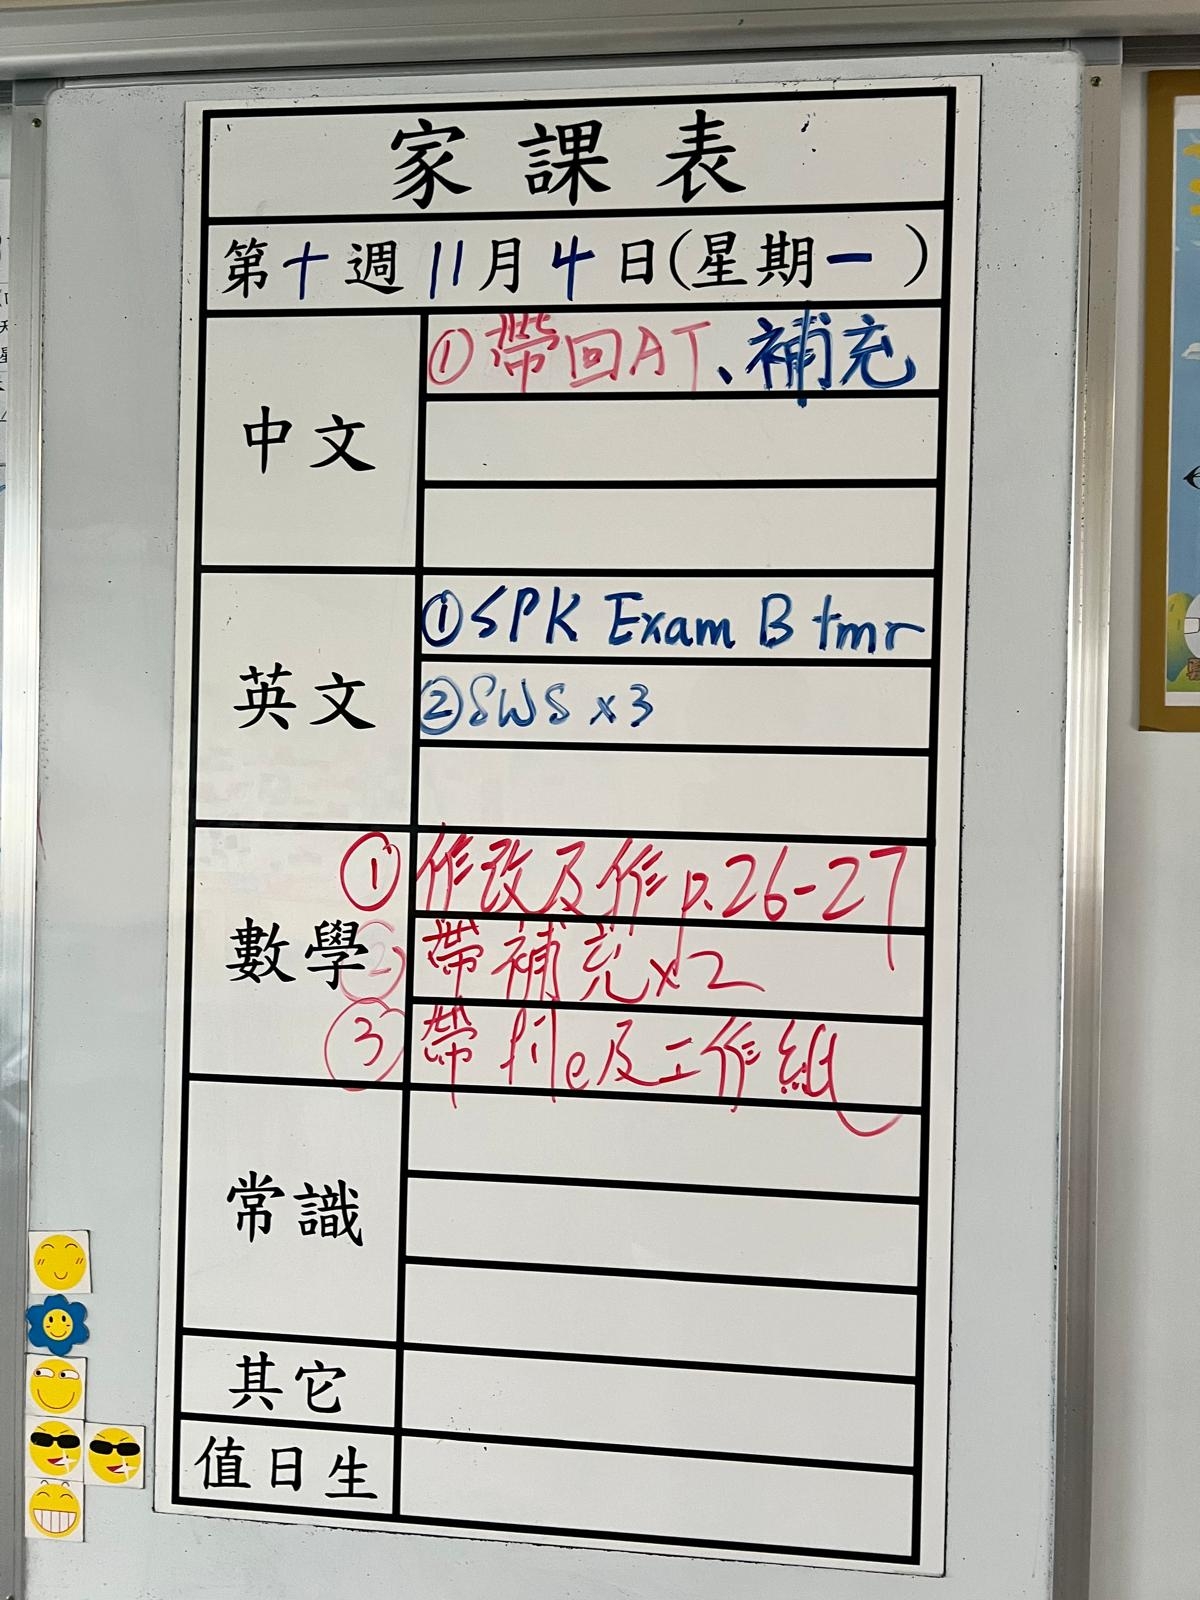 家課表
第十週11月4日(星期一)
中文
①帶回AT、補充
英文
①SPK Exam B tmr
②SWS x3
數學
①作改及作p.26-27
②帶補充x2
③帶 e及工作紙
常識
其它
值日生